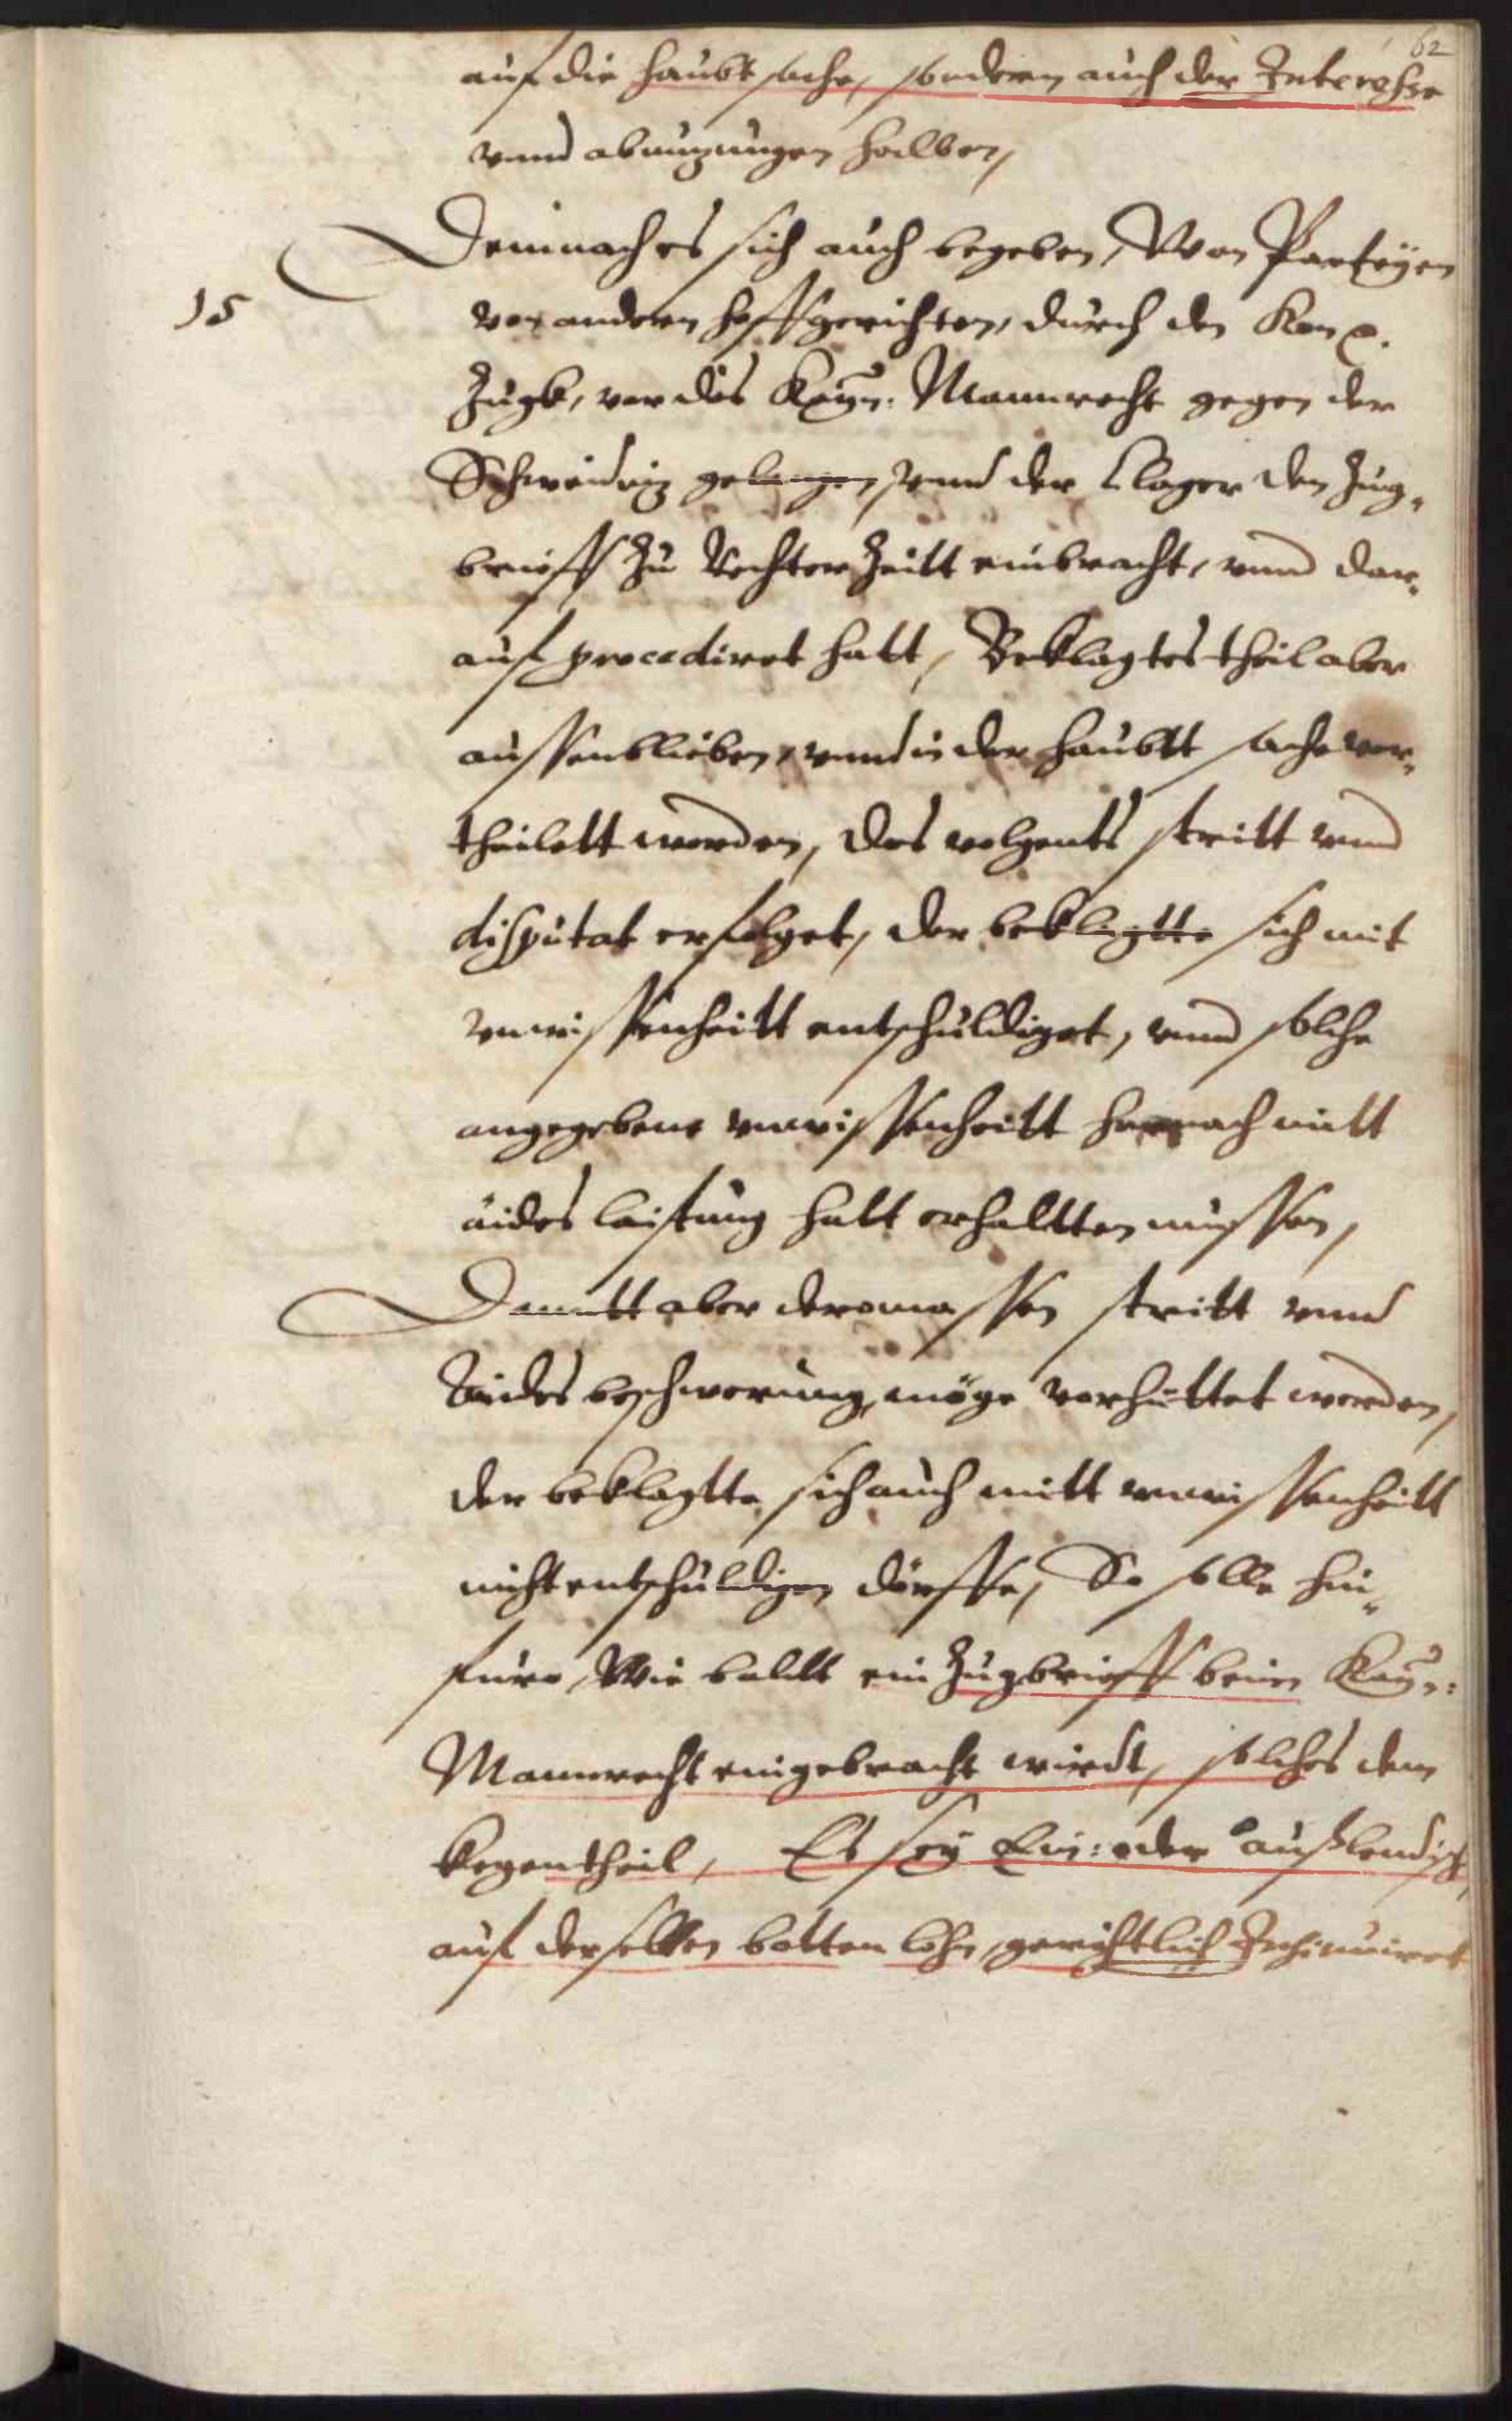 62
auf die haubt sache, sondern auch der Interesse
vnnd abnuzungen halben,
Demnach es sich auch begeben, Wan Parteÿen
15
von andern hoffgerichten, durch den
Zugk, vor das Kaÿn: Mannrecht gegen der
Schweidniz gelangen, vnnd der Clager den Zug-
brieff Zu Rechter Zeitt einbracht, vnnd dar-
auf procediret hatt, Beklagtes theil aber
aussenblieben, vnnd in der haubtt sache ver-
theilett worden, das volgents stritt vnnd
disputat erfolget, der beklagtte sich mit
vnwissenheitt entschuldiget, vnnd solche
angegebene vnwissenheitt hernach mitt
aides leistung hatt erhaltten mussen,
Damitt aber deromassen stritt vnnd
Aides beschwerung, möge verhüttet werden,
der beklagtte sich auch mitt vnwissenheitt
nicht entschuldigen dörffe, So solle hin-
furo, Wie baldt ein Zugbrieff beim Kaÿn:
Mannrecht eingebracht wirdt, solches dem
kegentheil, Es seÿ Ein: oder außlendisch,
auf desselben botten lohn, gerichtlich Insinuiret